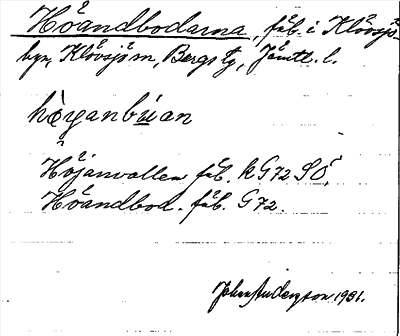 Höandbodarna, fäb. i Klövsjö-
byn, Klövsjö sn, Bergs tg, Jämtl. l.
hòyanbu̇an
Höjanvallen fäb. k G72 SÖ,
Höandbod. fäb. G72.
John Anderzson 1931.